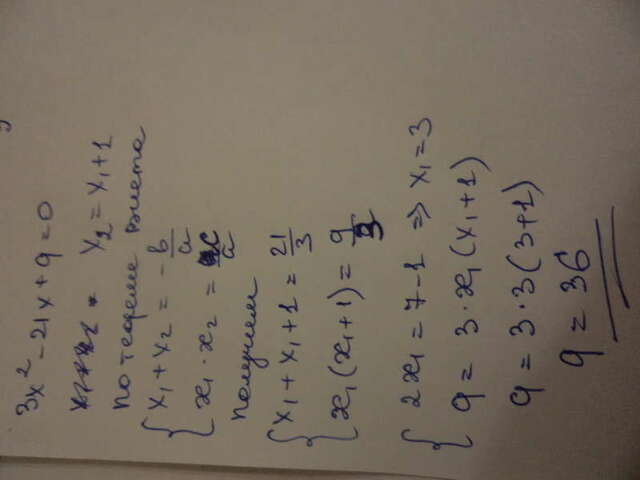 3x² - 21x + q = 0
x₂ = x₁ + 1
по теореме Виета
{ x₁ + x₂ = - b/a
x₁ · x₂ = c/a
Получим
{ x₁ + x₁ + 1 = 21/3
x₁(x₁+1) = q/3
{ 2x₁ = 7 - 1 ⇒ x₁ = 3
q = 3 · x₁(x₁+1)
q = 3 · 3(3+1)
q = 36